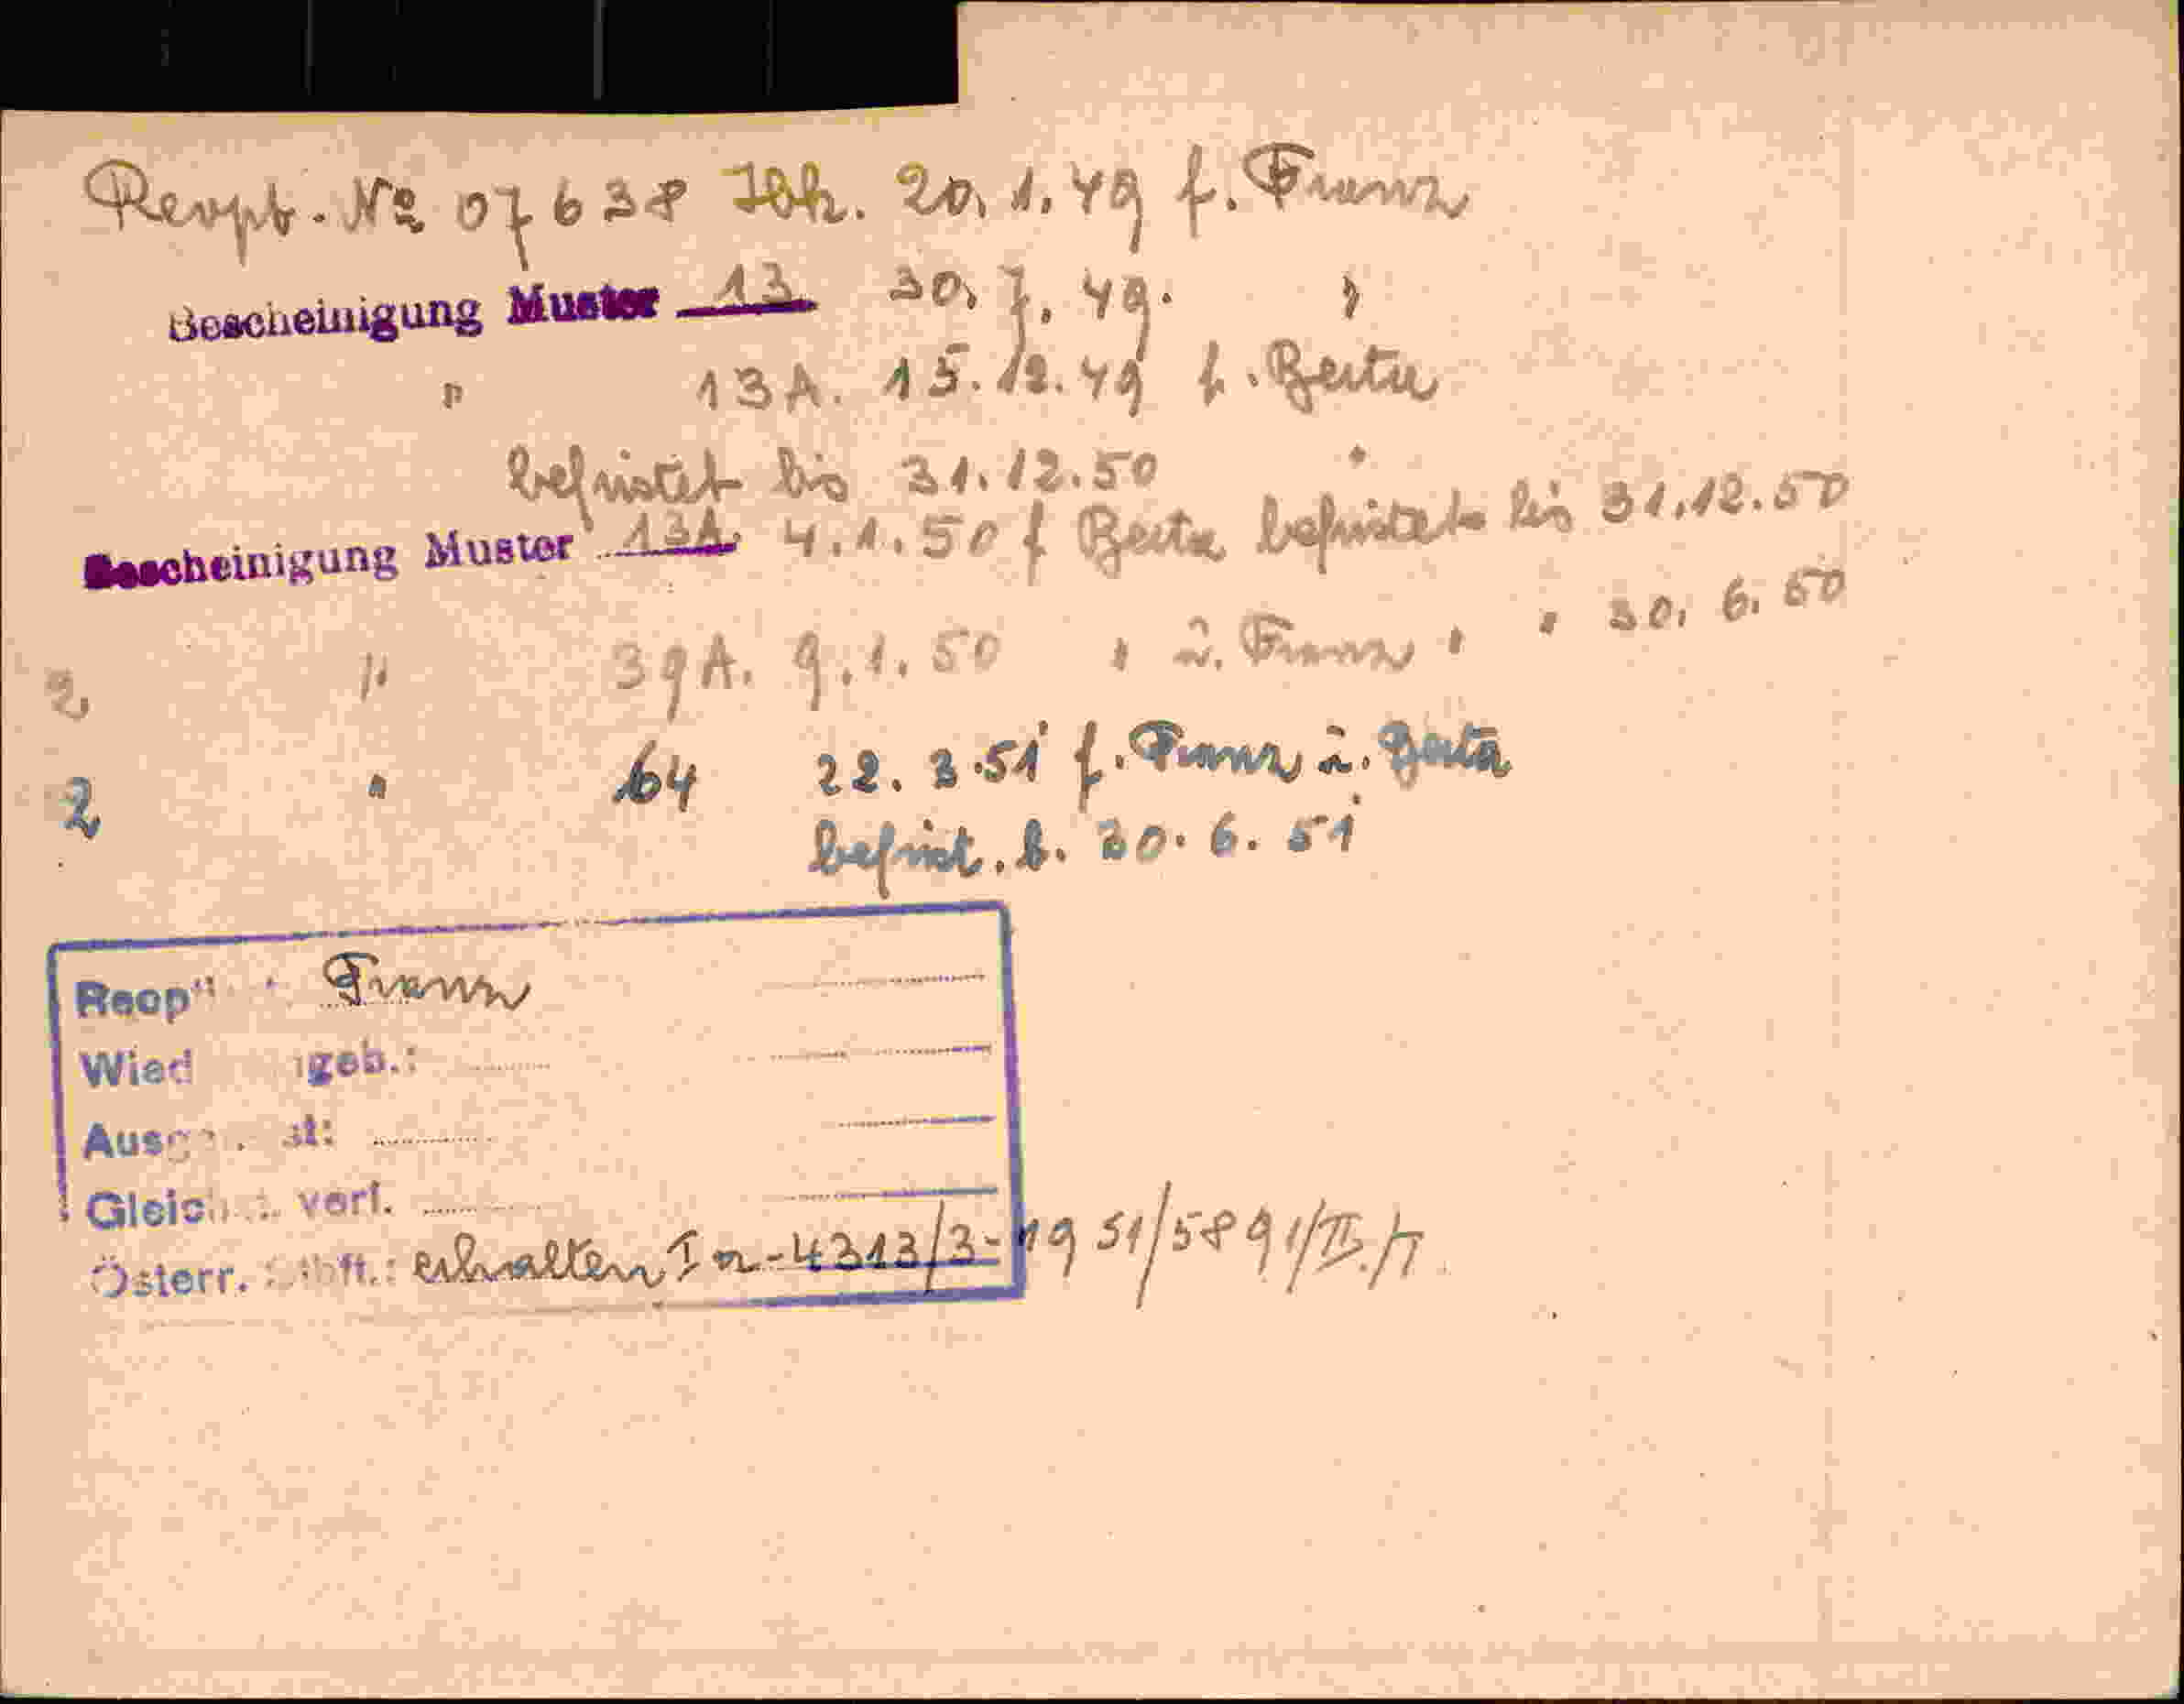 Reopt. № 07638 Joh. 20.1.49 f. Franz
Bescheinigung Muster 13 30.7.49. "
" 13A. 15.12.49 f. Berta
befristet bis 31.12.50
Bescheinigung Muster 13A. 4.1.50 f Berta befristet bis 31.12.50
2 " 39A. 9.1.50 " u. Franz " " 30.6.50
2 " 64 22.2.51 f. Franz u. Berta
befrist. b. 30.6.51
Reop Franz
Wied geb.:
Ausg. st:
Gleic verl.
Österr. erhalten In-4313/3-1951/5891/II./7.